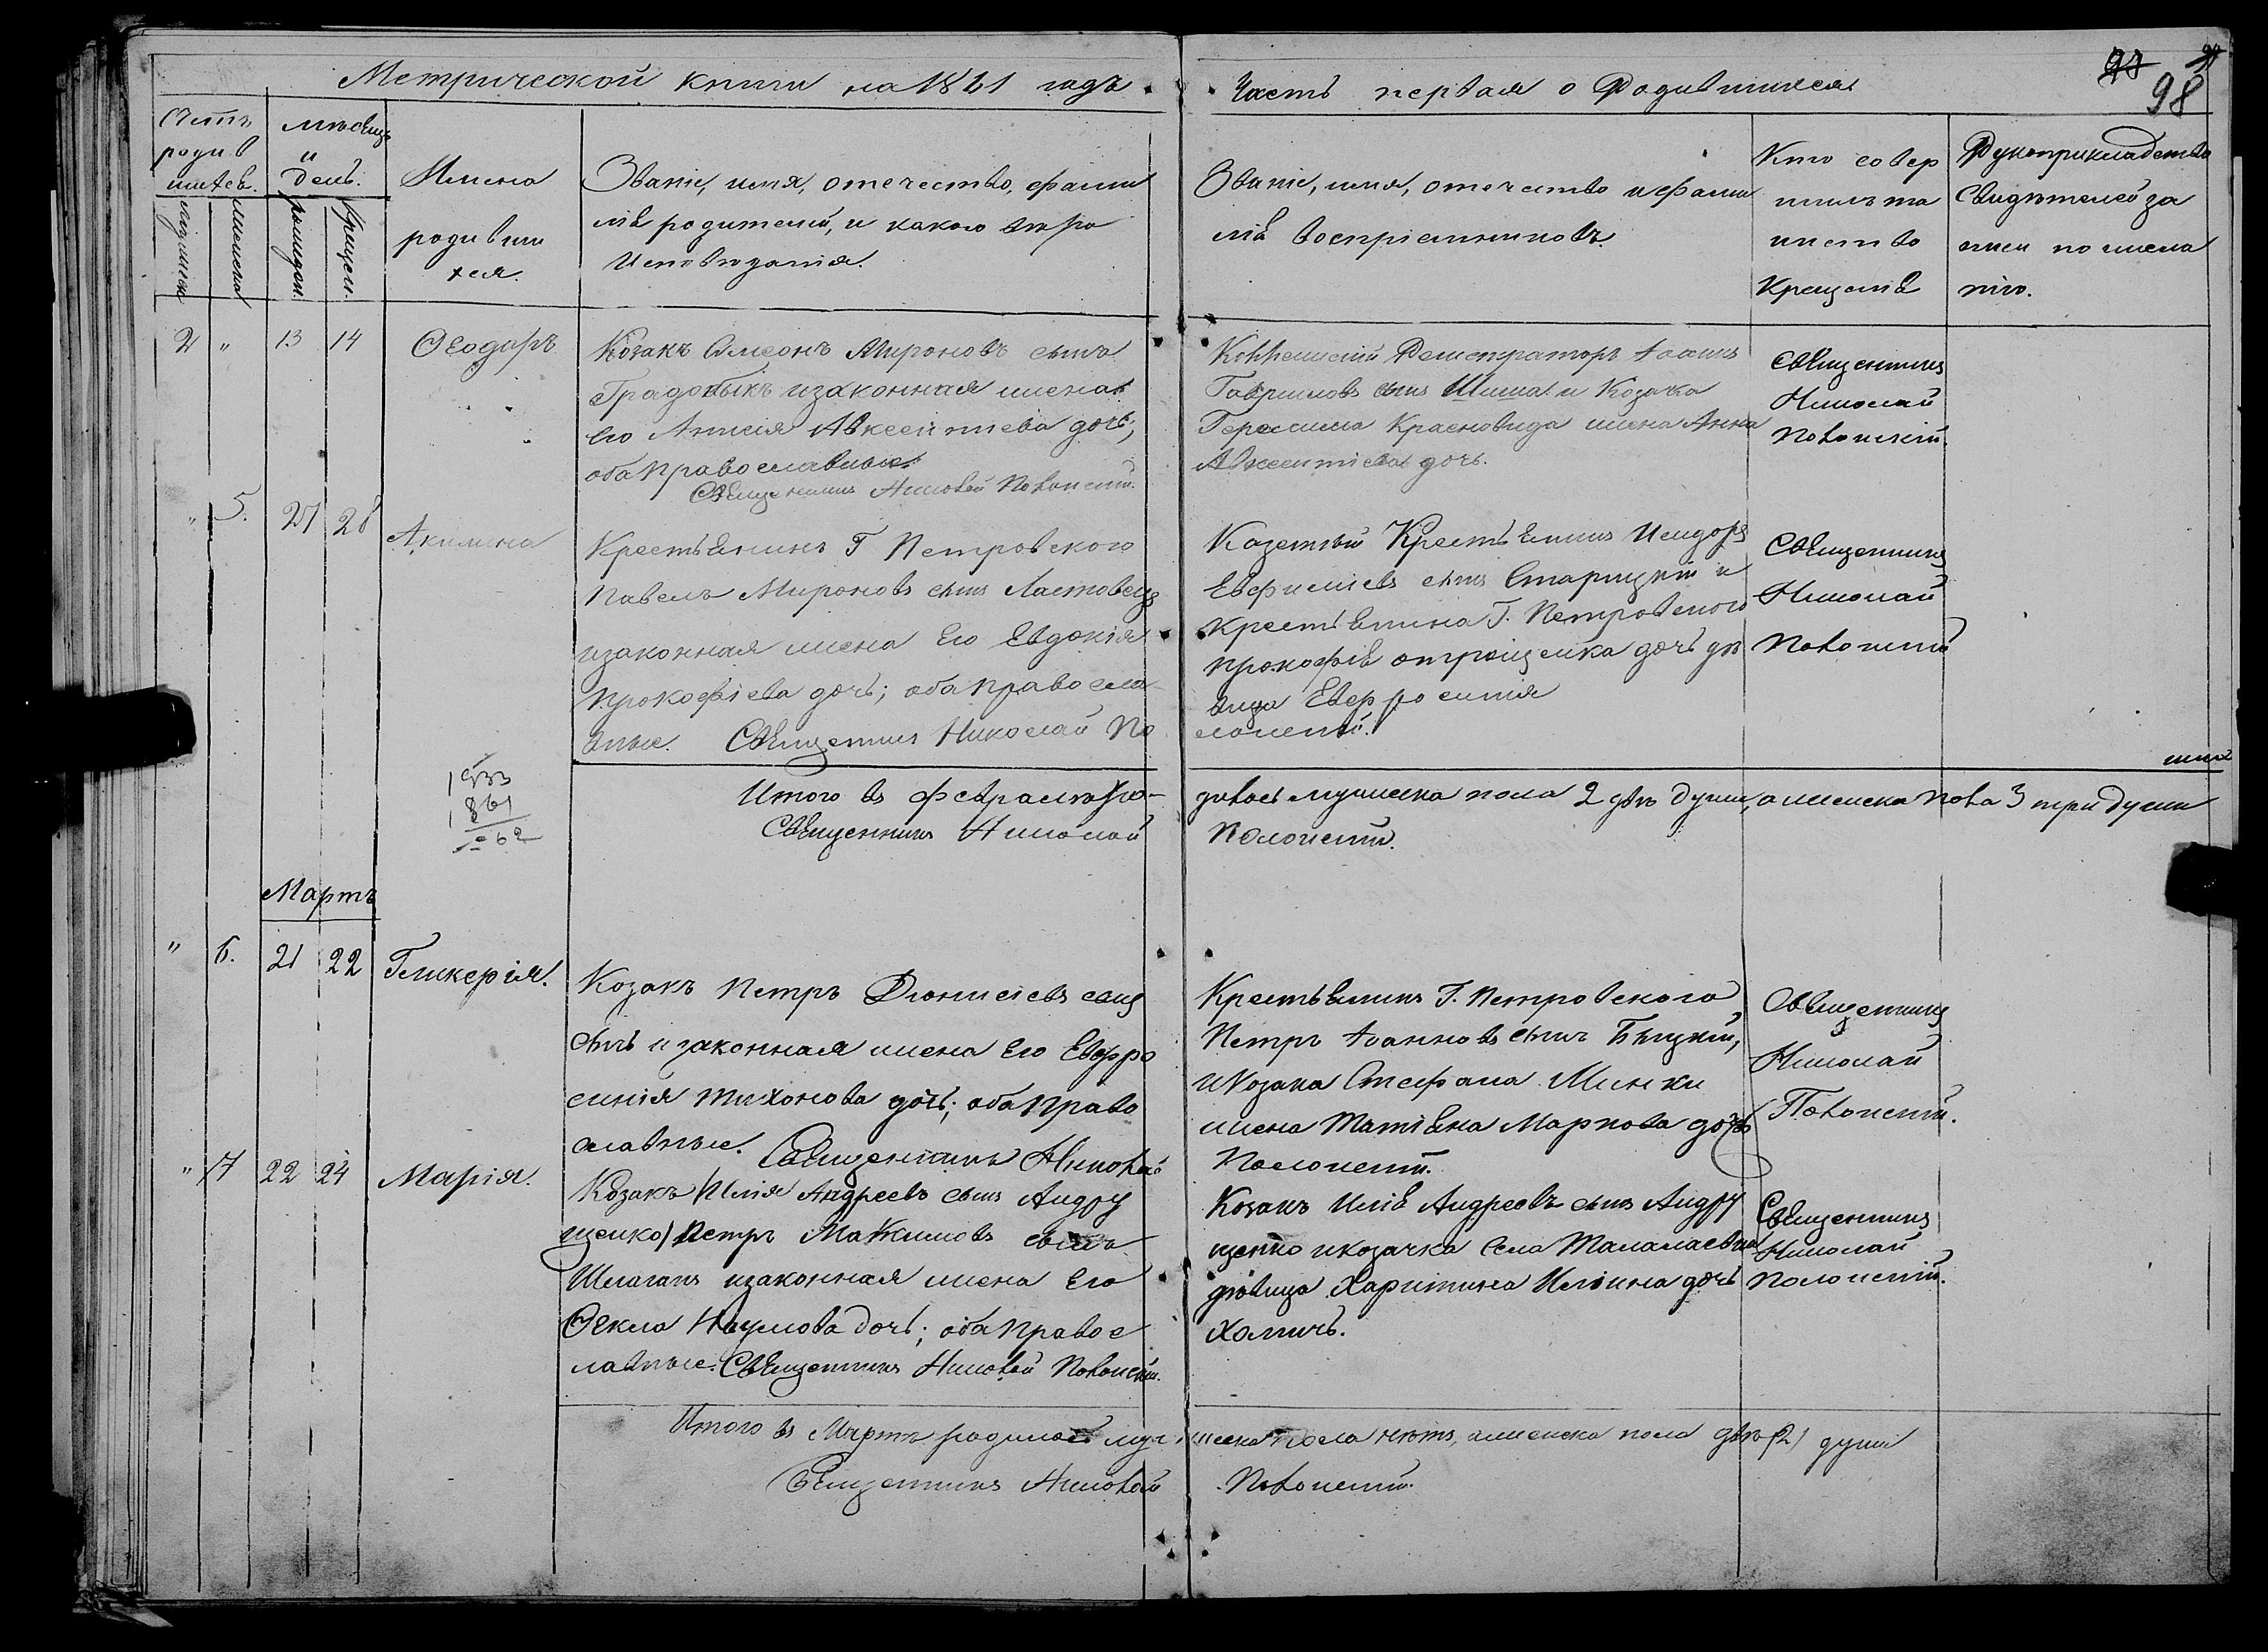 Метрической книги на 1861 годъ.
Часть первая о Родившихся
98
Счетъ родившихся.
Мѣсяцъ и день.
Имена родившихся.
Званіе, имя, отечество, фамилія родителей, и какого вѣроисповѣданія.
Званіе, имя, отечество и фамилія воспріемниковъ.
Кто совершилъ таинство крещенія
Рукоприкладство свидѣтелей за писи по желанію.
2 " 13 14 Ѳеодоръ
Козакъ Симеонъ Мироновъ сынъ
Градобыкъ изаконная жена
его Авксентиева дочь,
оба православные.
Священникъ Николай Полонскій.
Коллежскій Регистраторъ Іоаннъ
Гавриловъ сынъ Шиша и Козака
Герасима Красновида жена Анна
Авксентіева дочь.
Священникъ
Николай
Полонскій.
" 5. 27 28 Акилина
Крестьянинъ Г Петровского
Павелъ Мироновъ сынъ Ластовецъ
изаконная жена его Евдокія
Прокофіева дочь; оба правосла
вные. Священникъ Николай По
лонскій.
Казенный Крестьянинъ Исидоръ
Евфиміевъ сынъ Старицкій и
крестьянина Г. Петровского
Прокофія дочь дѣ
вица Евфросинія
Священникъ
Николай
Полонскій
1933
1861
= 62
Итого въ Февралѣ ро-
дилось мужеска пола 2 двѣ души, а женска пола 3 три души
Священникъ Николай
Полонскій.
Мартъ
" 6. 21 22 Гликерія.
Козакъ Петръ Діонисіевъ
сынъ изаконная жена его Евфро
синія Тихонова дочь; оба право
славные. Священникъ Николай
Полонскій.
Крестьянинъ Г. Петровского
Петръ Іоанновъ сынъ Бѣцкій,
и Козака Стефана Минки
жена Татіяна Маркова дочь
Священникъ
Николай
Полонскій.
" 7 22 24 Марія.
Козакъ (Илія Андреевъ сынъ Андру
щенко) Петръ Максимовъ сынъ
изаконная жена его
Ѳекла Наумова дочь; оба правос
лавные. Священникъ Николай Полонскій.
Козакъ Илія Андреевъ сынъ Андру
щенко и козачка села Талалаевки
дѣвица Харитина Иліина дочь
Халичъ.
Священникъ
Николай
Полонскій.
Итого въ Мартѣ родилось мужеска пола нѣтъ, а женска пола двѣ (2) души
Священникъ Николай
Полонскій.